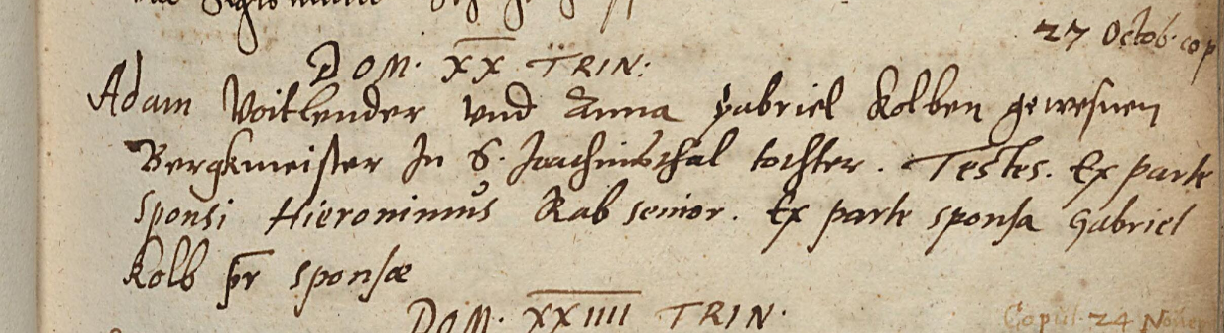 27 Octob. cop
DOM. XX TRIN.
Adam Voitlender und Anna Gabriel Kolben gewesnen
Bergkmeister In S. Joachimsthal tochter. Testes. Ex parte
sponsi Hieronimus Rab senior. Ex parte sponsa Gabriel
Kolb pr sponsæ
DOM. XXIIII TRIN.
Copul. 24 Novem